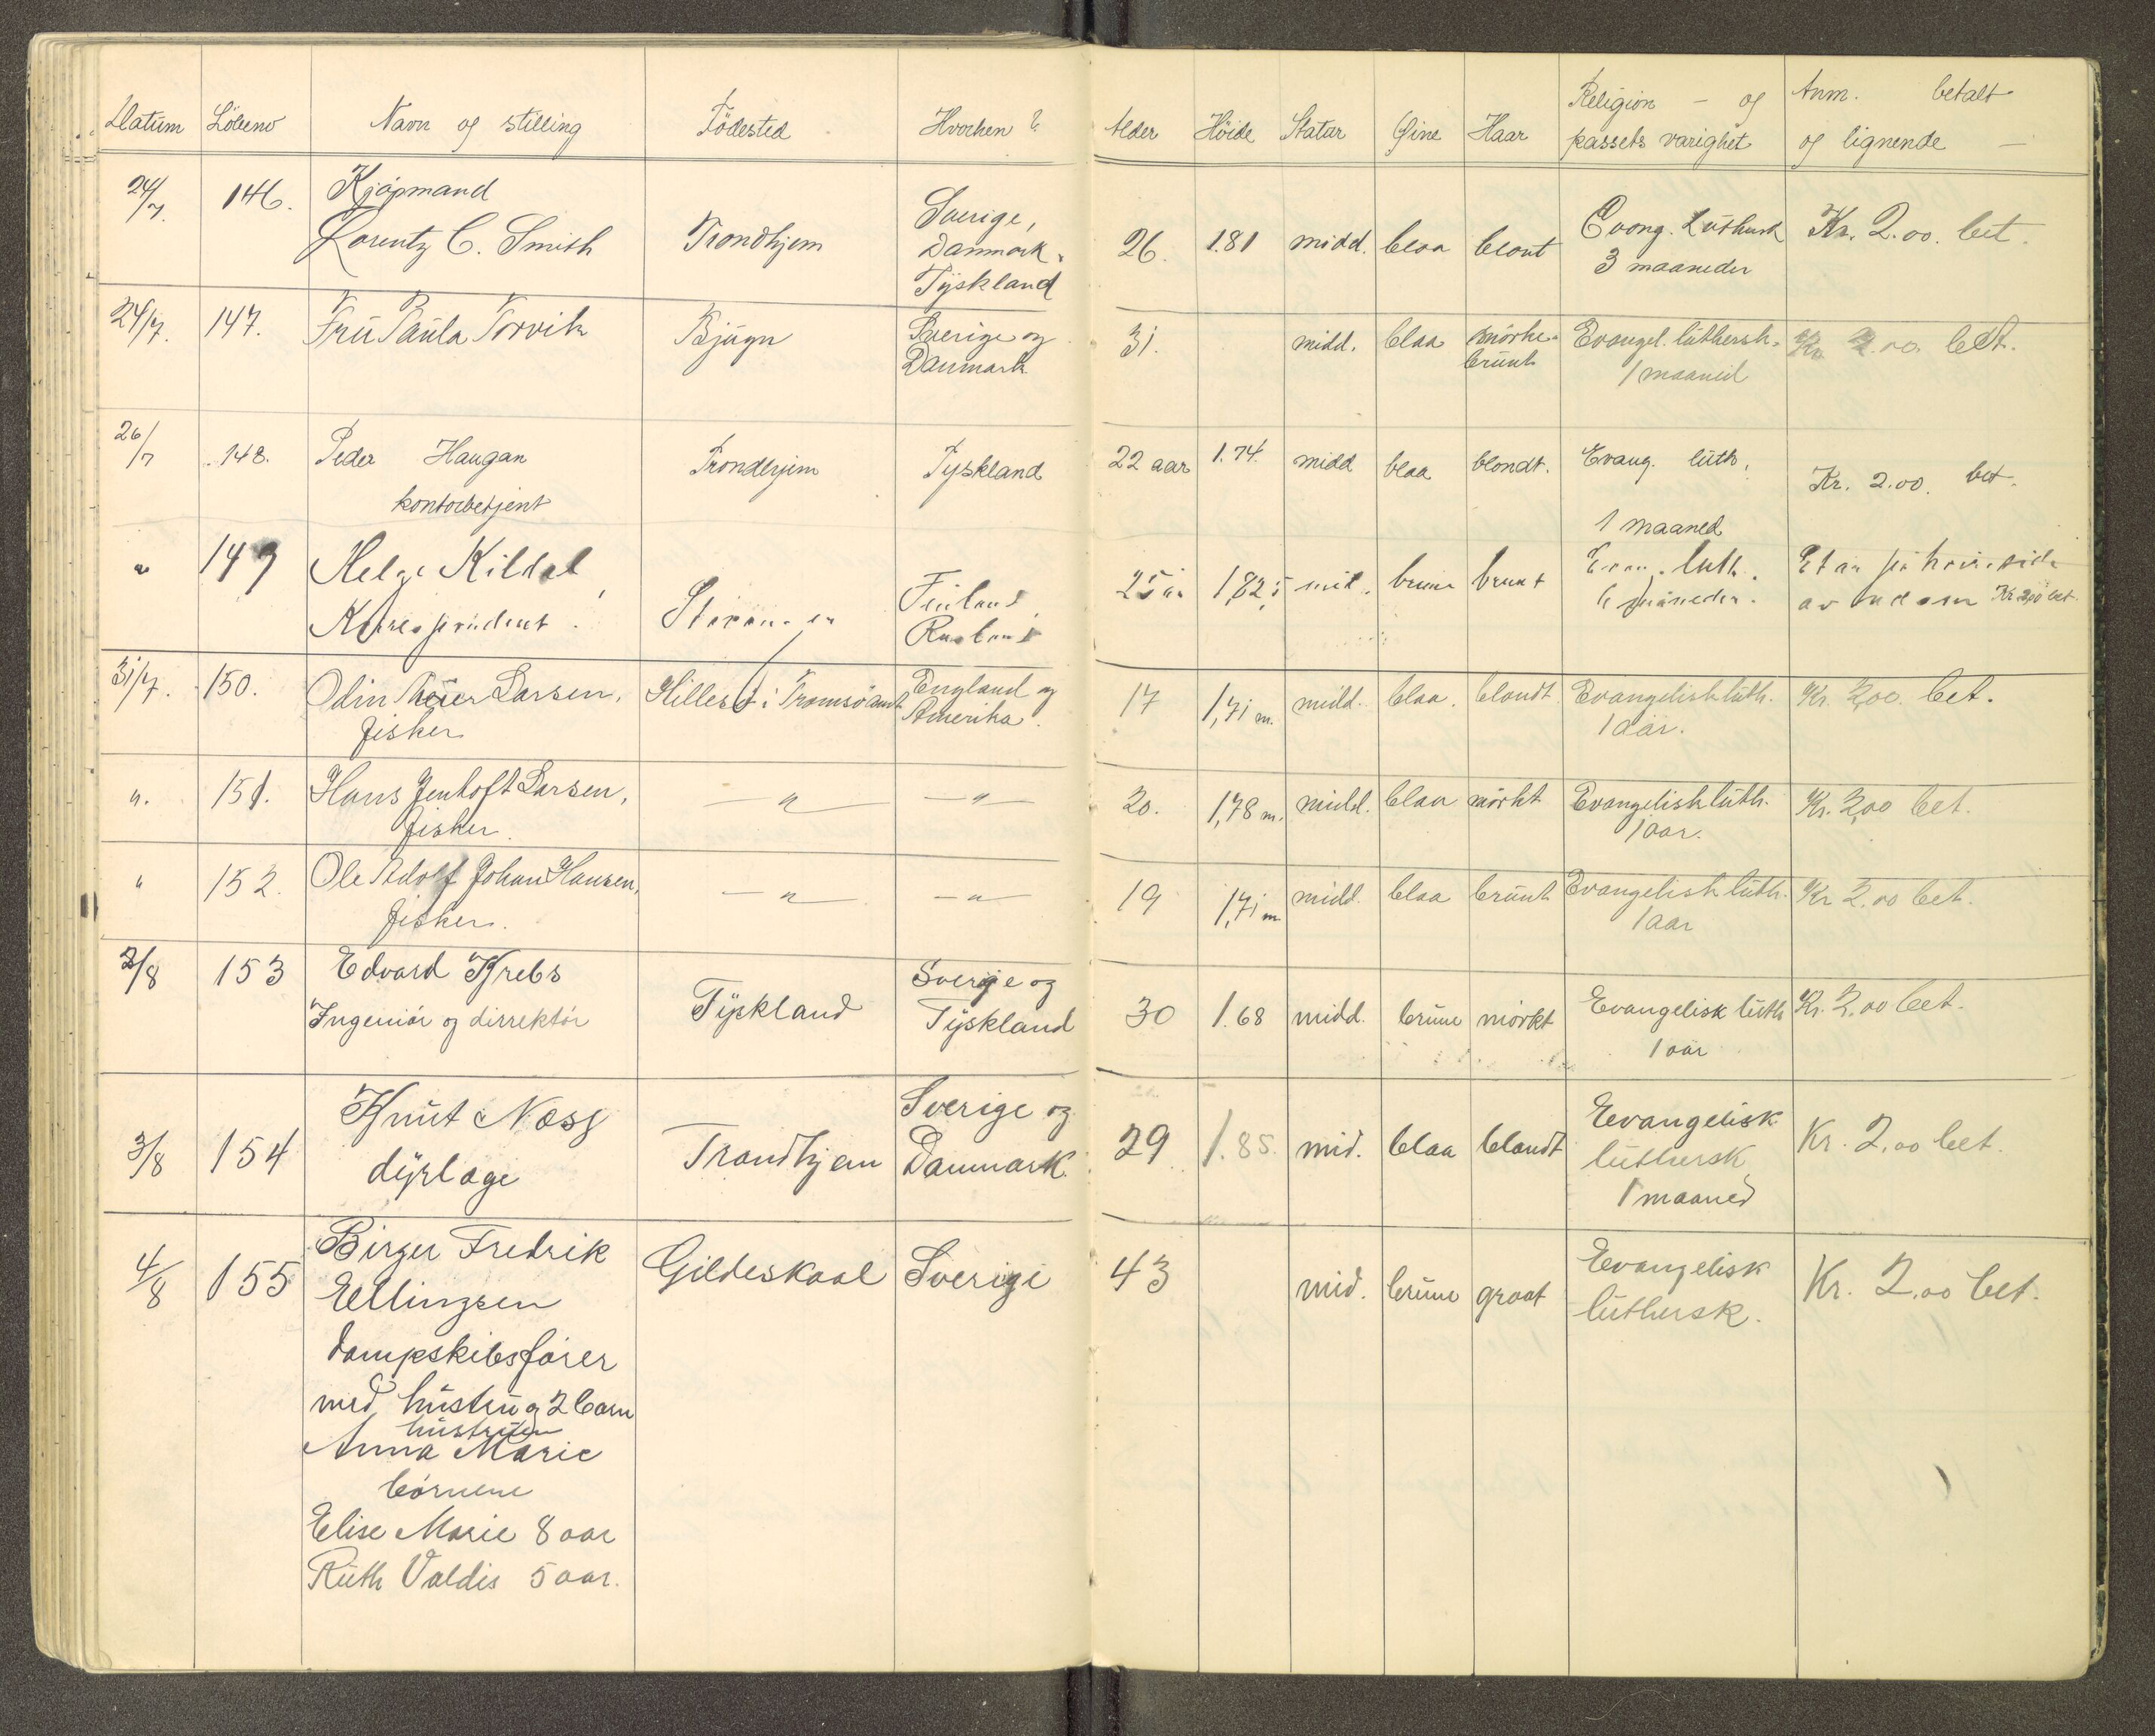 Datum Löbeno Navn og stilling Födested Hvorhen? Alder Höide Statur Öine Haar Religion - og passets varighet Anm. betalt og lignende -
24/7. 146. Kjöpmand
Lorentz C. Smith Trondhjem Sverige,
Danmark,
Tyskland 26. 1.81 midd. blaa blont Evang. Luthersk
3 maaneder Kr. 2.00. bet.
24/7. 147. Fru Paula Torvik Bjugn Sverige og
Danmark 31. midd. blaa mörke-
brunt Evangel. luthersk.
1 maaned Kr. 2.00. bet.
26/7 148. Peder Haugan
kontorbetjent Trondhjem Tyskland 22 aar 1.74. midd blaa blondt. Evang. luth.
1 maaned Kr. 2.00. bet.
" 149 Helge Kildal,
Korrespondent. Finland,
Rusland 25 år 1,82,5 mid. brune brunt Evan. luth.
6 måneder. Kr 2,00 bet.
31/7. 150. Odin Larsen,
fisker Hillesö i Tromsö amt England og
Amerika. 17 1,71 m. midd. blaa. blondt Evangelisk luth.
1 aar. Kr. 2,00. bet.
". 151. Hans Jentoft Larsen,
fisker. — " — — " — 20. 1,78 m. midd. blaa mörkt Evangelisk luth.
1 aar. Kr. 2,00 bet.
" 152. Ole Adolf Johan Hansen,
fisker. — " — — " — 19 1,71 m midd. blaa brunt Evangelisk luth.
1 aar Kr 2.00 bet.
2/8 153 Edvard Krebs
Ingeniör og dirrektör Tyskland Sverige og
Tyskland 30 1.68 midd. brune mörkt Evangelisk luth
1 aar Kr. 2.00 bet.
3/8 154 Knut Næss
dyrlæge Trondhjem Sverige og
Danmark. 29 1.85. mid. blaa blondt Evangelisk
luthersk
1 maaned Kr. 2.00 bet.
4/8 155 Birger Fredrik
Ellingsen
dampskibsförer
med hustru og 2 barn
hustruen
Anna Marie
börnene
Elise Marie 8 aar
Ruth Valdis 5 aar. Gildeskaal Sverige 43 mid. brune graat Evangelisk
luthersk. Kr. 2.00 bet.